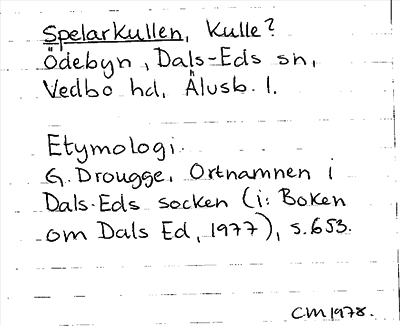 Spelarkullen, Kulle?
Ödebyn, Dals-Eds sn,
Vedbo hd, Älvsb. l.
Etymologi.
G. Drougge, Ortnamnen i
Dals-Eds socken (i: Boken
om Dals Ed, 1977), s. 653.
CM 1978.